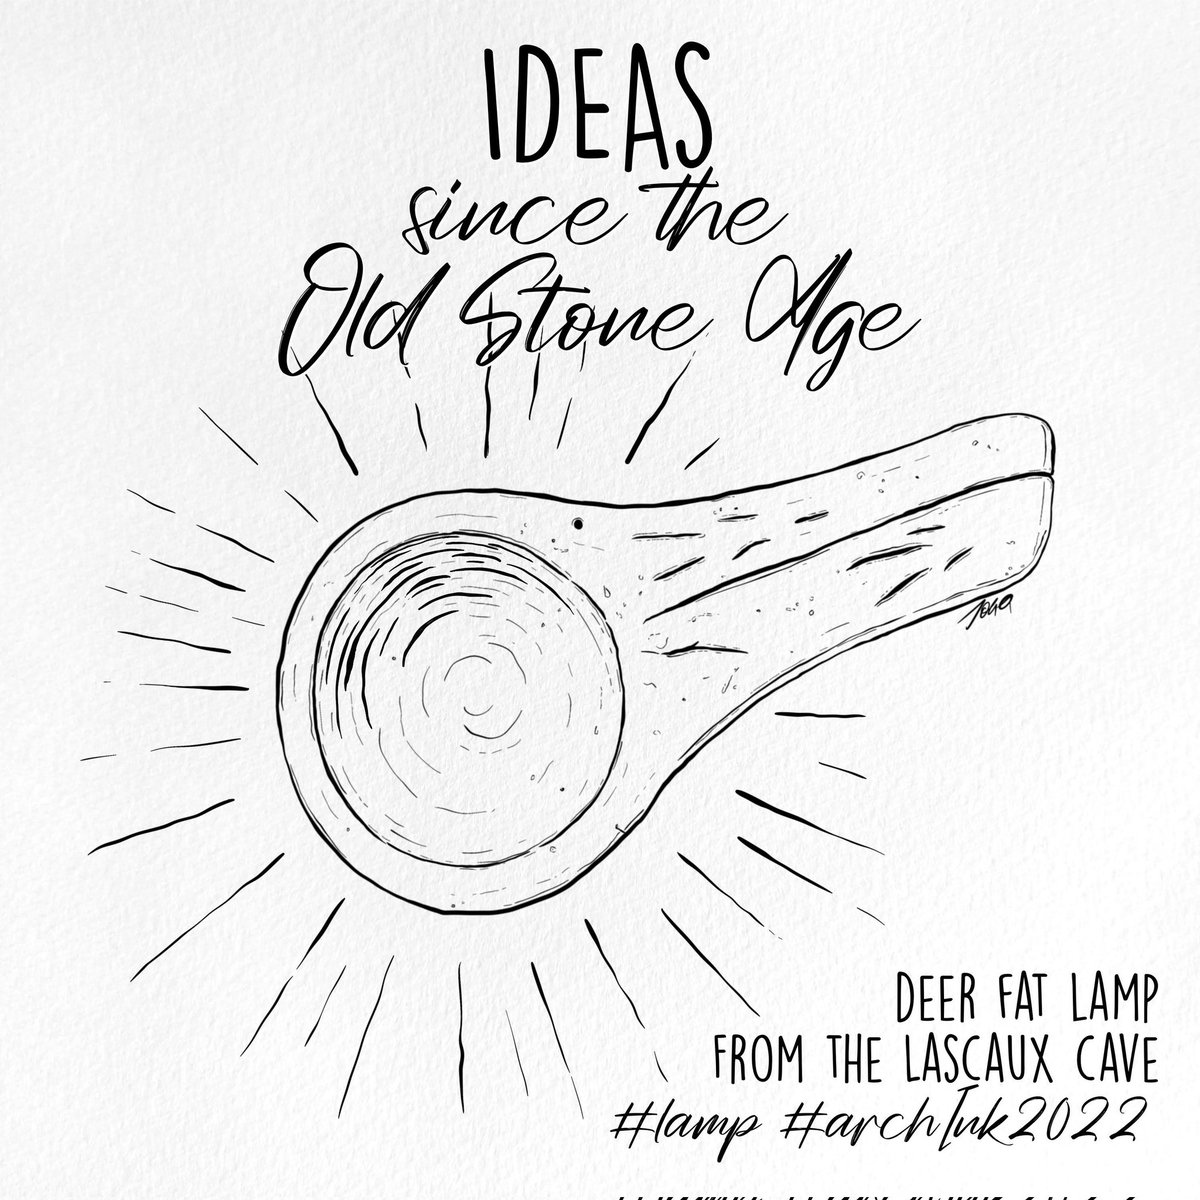 IDEAS
since the
Old Stone Age
DEER FAT LAMP
FROM THE LASCAUX CAVE
#lamp #archInk2022